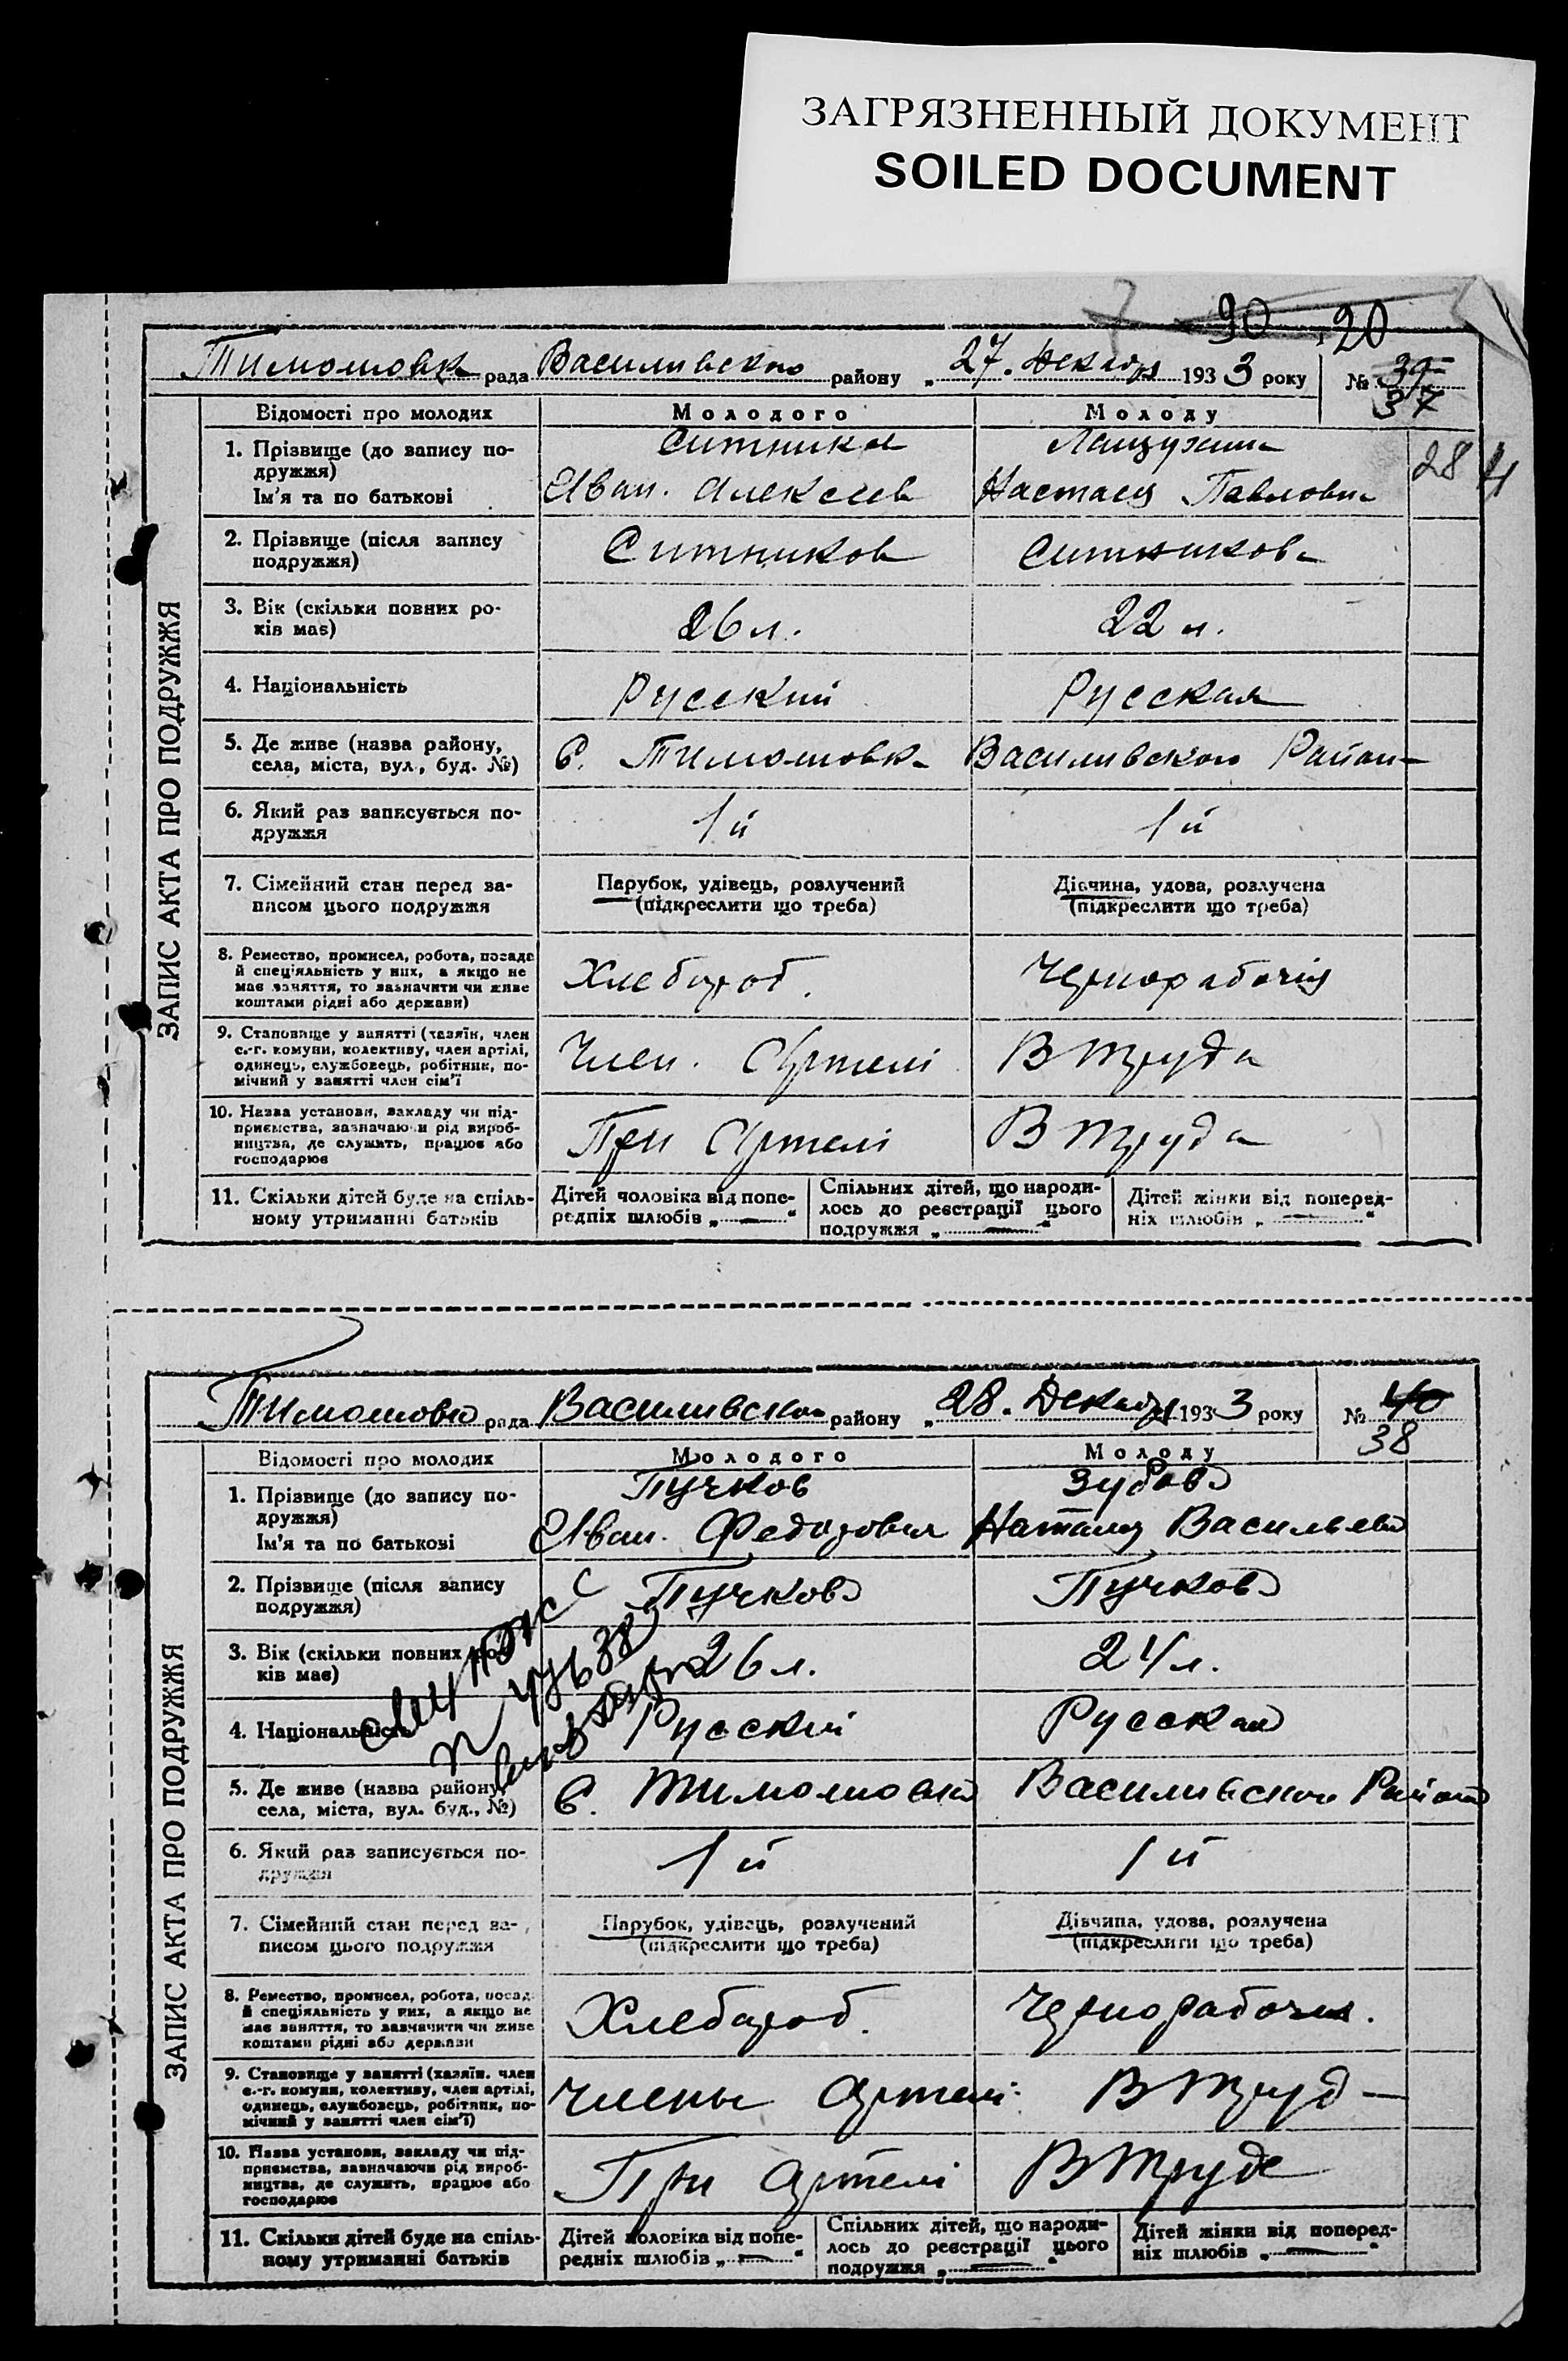 ЗАГРЯЗНЕННЫЙ ДОКУМЕНТ
SOILED DOCUMENT
90 20
Тимошовка рада Василивского району „27. Декабря 1933 року № 39
37
ЗАПИС АКТА ПРО ПОДРУЖЖЯ
Відомості про молодих Молодого Молоду
1. Прізвище (до запису по-
дружжя)
Ім'я та по батькові
Ситников
Иван. Алексеев Настасия Павловна
28
2. Прізвище (після запису
подружжя)
Ситников Ситникова
3. Вік (скільки повних ро-
ків має)
26 л. 22 л.
4. Національність
Русский Русская
5. Де живе (назва району,
села, міста, вул., буд. №)
С. Тимошовка Василивского Района
6. Який раз записується по-
дружжя
1й 1й
7. Сімейний стан перед за-
писом цього подружжя
Парубок, удівець, розлучений
(підкреслити що треба)
Дівчина, удова, розлучена
(підкреслити що треба)
8. Ремество, промисел, робота, посада
й спеціяльність у них, а якщо не
має заняття, то зазначити чи живе
коштами рідні або держави)
Хлебороб. Чернорабочия
9. Становище у занятті (хазяїн, член
с.-г. комуни, колективу, член артілі,
одинець, службовець, робітник, по-
мічний у занятті член сім'ї
Член. Артели В труда
10. Назва установи, закладу чи під-
приємства, зазначаючи рід вироб-
ництва, де служить, працює або
господарює
При Артелі В труда
11. Скільки дітей буде на спіль-
ному утриманні батьків
Дітей чоловіка від попе-
редніх шлюбів „—“
Спільних дітей, що народи-
лось до реєстрації цього
подружжя „—“
Дітей жінки від поперед-
ніх шлюбів „—“
Тимошовка рада Василивского району „28. Декабря 1933 року № 40
38
ЗАПИС АКТА ПРО ПОДРУЖЖЯ
Відомості про молодих Молодого Молоду
1. Прізвище (до запису по-
дружжя)
Ім'я та по батькові
Пучков Зубова
Иван. Федорович Наталия Васильевна
2. Прізвище (після запису
подружжя)
Пучков Пучкова
3. Вік (скільки повних ро-
ків має)
26 л. 24 л.
4. Національність
Русский Русская
5. Де живе (назва району,
села, міста, вул. буд., №)
С. Тимошовка Василивского Района
6. Який раз записується по-
дружжя
1й 1й
7. Сімейний стан перед за-
писом цього подружжя
Парубок, удівець, розлучений
(підкреслити що треба)
Дівчина, удова, розлучена
(підкреслити що треба)
8. Ремество, промисел, робота, посада
й спеціяльність у них, а якщо не
має заняття, то зазначити чи живе
коштами рідні або держави
Хлебороб. Чернорабочая.
9. Становище у занятті (хазяїн, член
с.-г. комуни, колективу, член артілі,
одинець, службовець, робітник, по-
мічний у занятті член сім'ї)
Члены Артели В труд
10. Назва установи, закладу чи під-
приємства, зазначаючи рід вироб-
ництва, де служить, працює або
господарює
При Артелі В труде
11. Скільки дітей буде на спіль-
ному утриманні батьків
Дітей чоловіка від попе-
редніх шлюбів „—“
Спільних дітей, що народи-
лось до реєстрації цього
подружжя „—“
Дітей жінки від поперед-
ніх шлюбів „—“